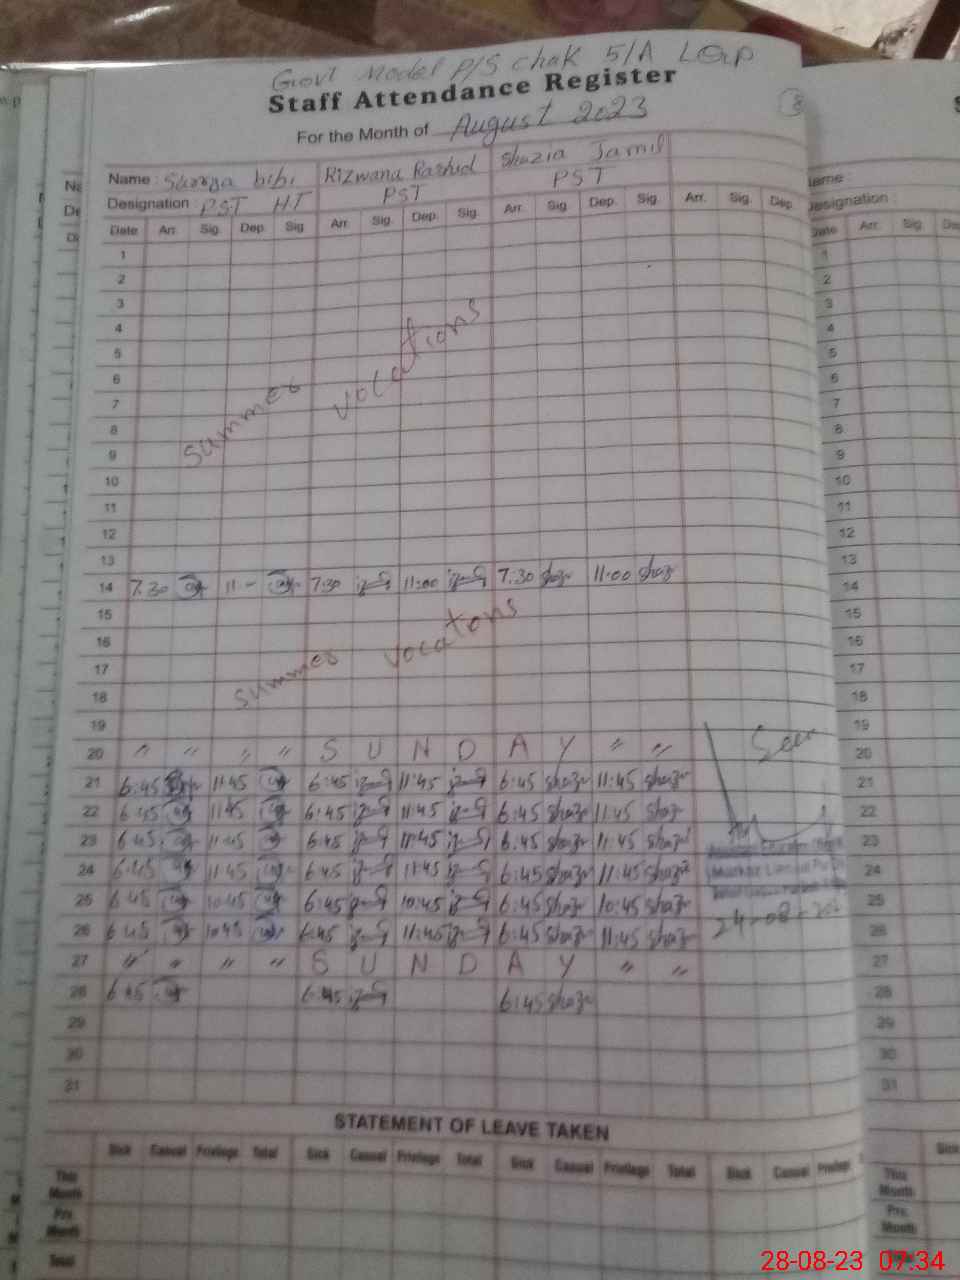 Govt Model P/S chak 5/A LGip
Staff Attendance Register
For the Month of August 2023
8
Name : bibi Rizwana Rashid Shazia Jamil
Designation : PST HT PST PST
Date Arr. Sig. Dep. Sig Arr. Sig. Dep. Sig Arr. Sig Dep. Sig. Arr. Sig. Dep.
1
2
3
4
5
6
7
8
9
10
11
12
13
summer vocations
14 7.30 11 - 7:30 11:00 7:30 shaz 11:00 shaz
15
16
17
18
19
summer vocatons
20 " " " " S U N D A Y " "
21 6:45 11:45 6:45 11:45 6:45 shaz 11:45 shaz
22 6:45 11:45 6:45 11:45 6:45 shaz 11:45 shaz
23 6:45 11:45 6:45 11:45 6:45 shaz 11:45 shaz
24 6:45 11:45 6:45 11:45 6:45 shaz 11:45 shaz
25 6:45 10:45 6:45 10:45 6:45 shaz 10:45 shaz
26 6:45 10:45 6:45 11:45 6:45 shaz 11:45 shaz
27 " " " " S U N D A Y " "
28 6:45 6:45 6:45 shaz
29
30
31
Seen
24-08-20
STATEMENT OF LEAVE TAKEN
Sick Casual Privilege Total Sick Casual Privilege Total Sick Casual Privilege Total Sick Casual Privilege
This Month
Prv. Month
Total
ame :
esignation :
Date Arr. Sig. De
1
2
3
4
5
6
7
8
9
10
11
12
13
14
15
16
17
18
19
20
21
22
23
24
25
26
27
28
29
30
31
Sick
This Month
Prv. Month
28-08-23 07:34